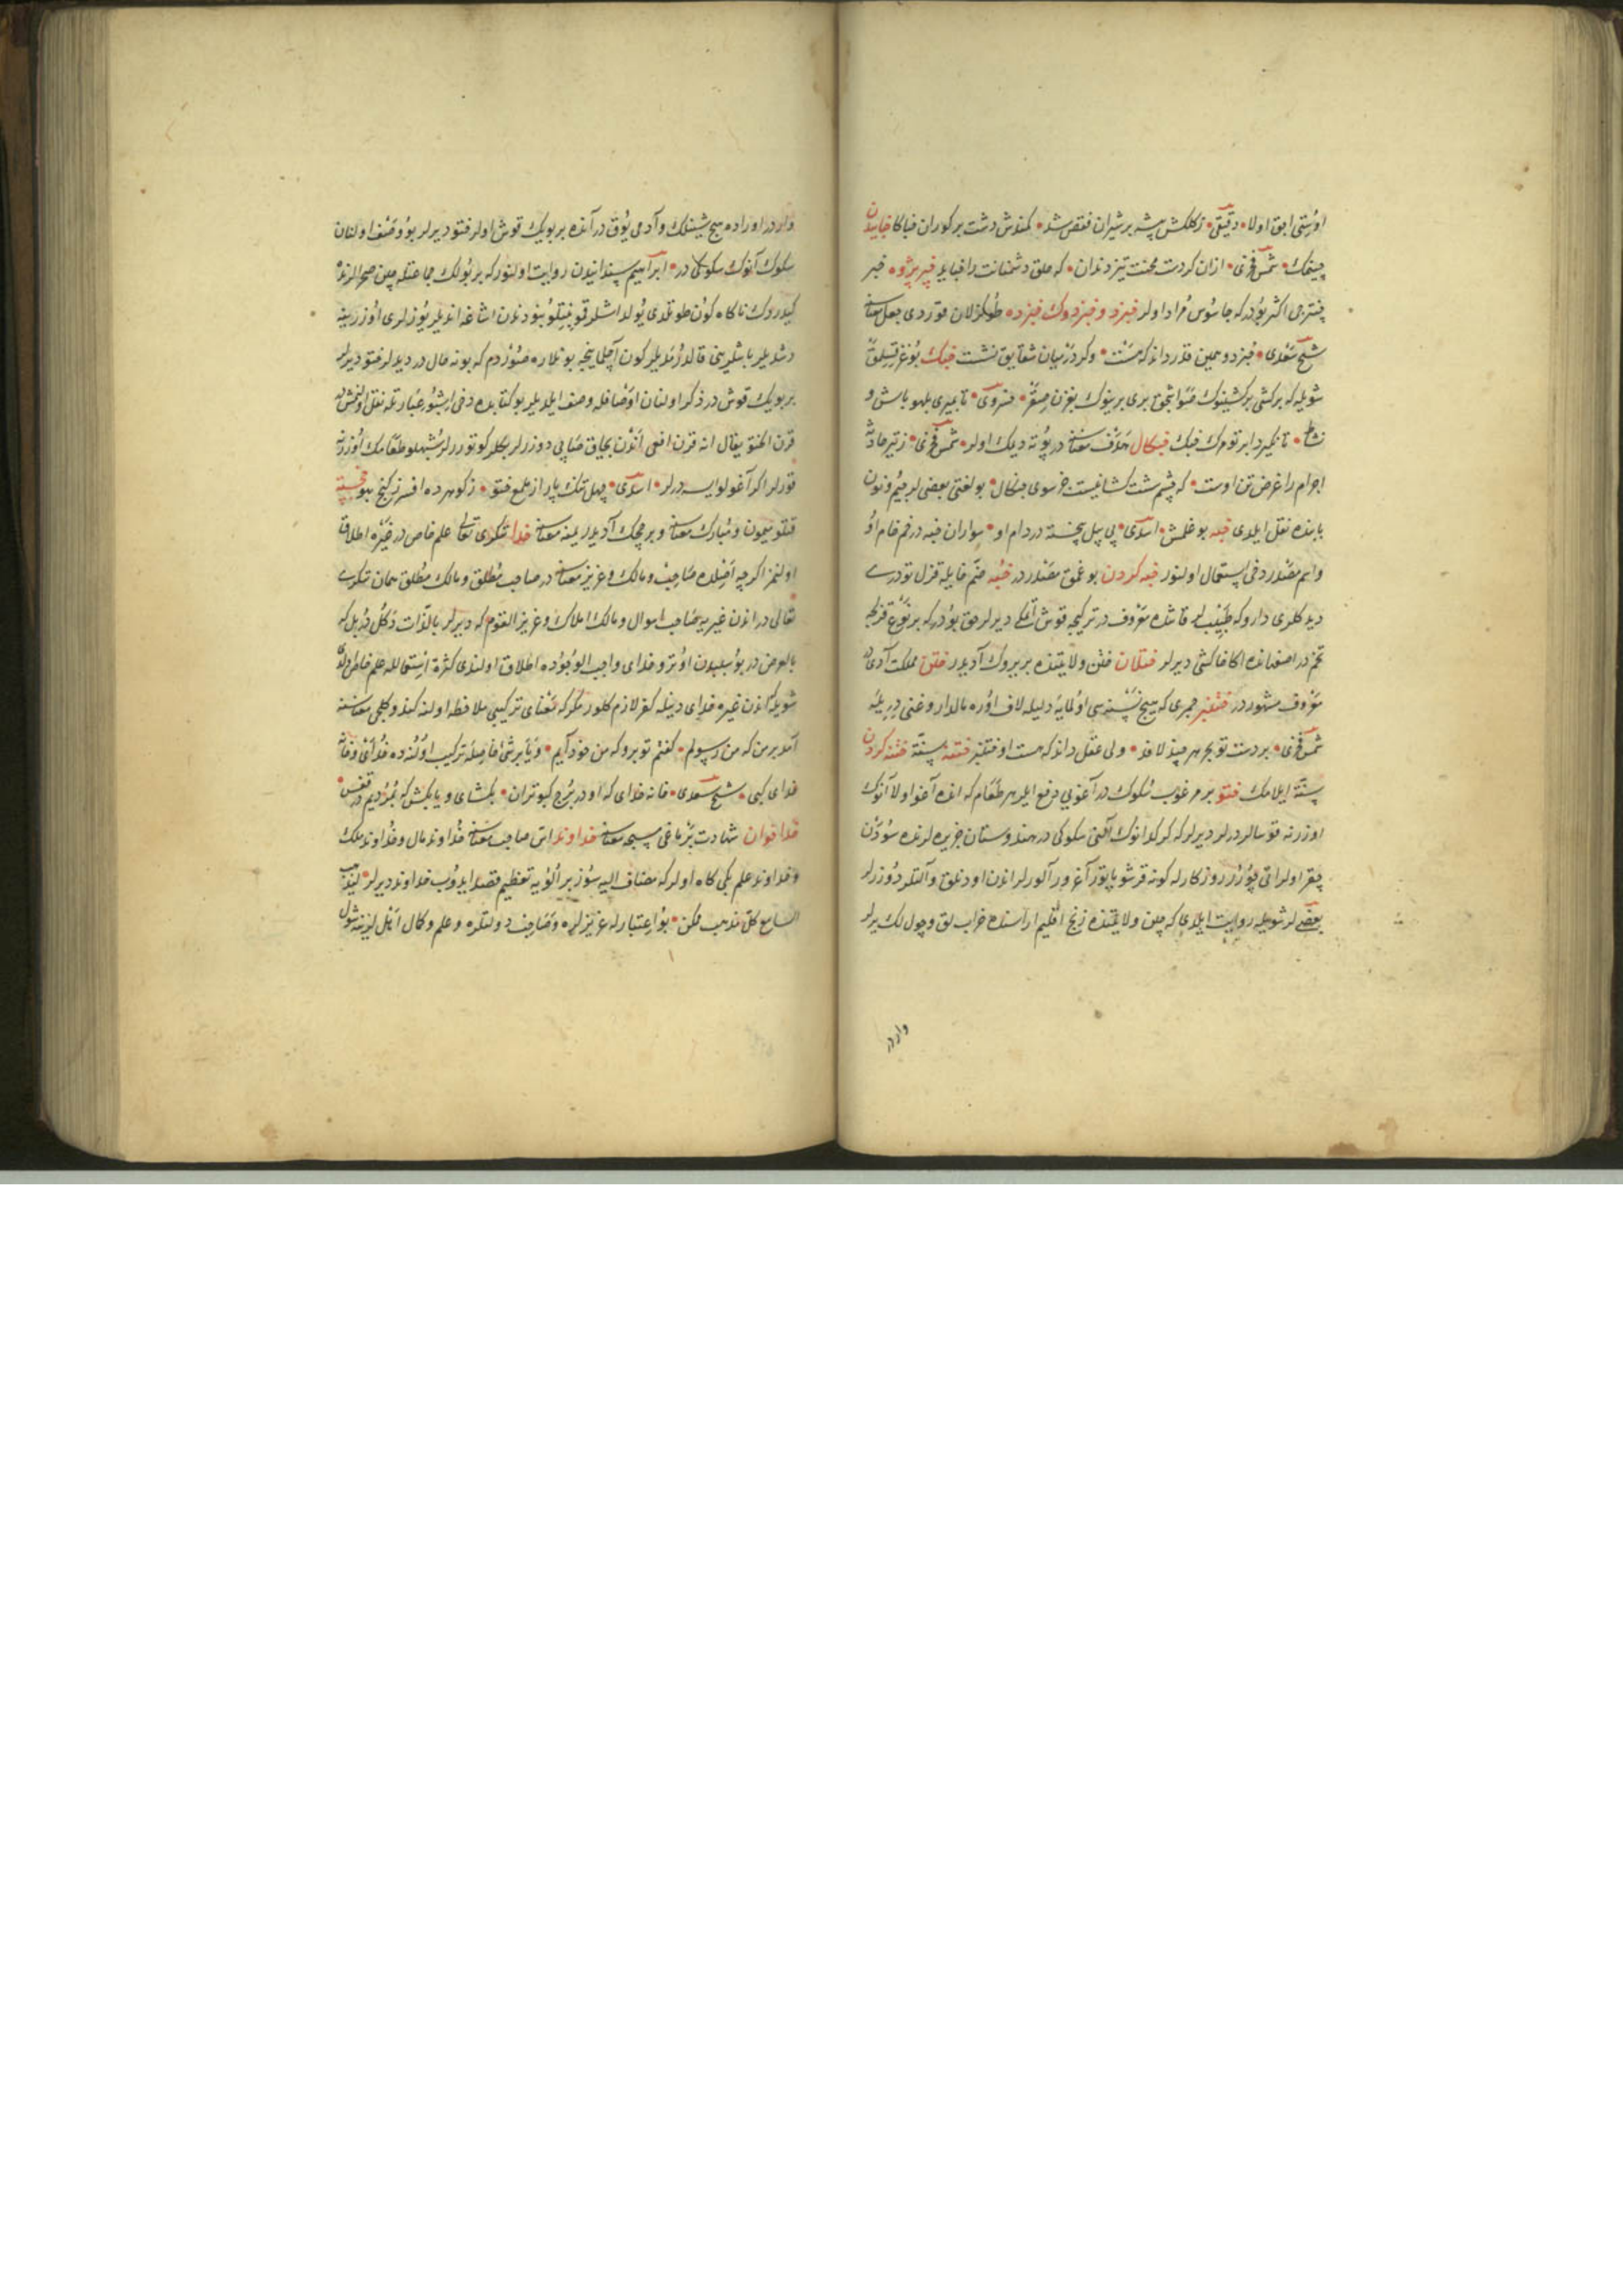 اوستى اجق اولا دقیقى زکلکش پشه بر شیران قفص شد کمندش دشت بر کوران خباکا خبایدن
چینمك شمس فخرى ازان کردست محنت تیز دندان که حلق دشمنانت را خباید خبر پژوه خبر
اکثر بودر که جاسوس مراد اولر خبزد و خبزدوك خبزده طوکزلان قوردى جعل معناسنه
شیخ سعدى خبزدو همین قدر داند که هست وکر در میان شقایق نشست خبك بوغز
شویله که بر کشى بر کشینوك برى برینوك بوغزن خسروى تا بمیرى بلهو باش و
نشاط تا نکیرد ابر تو مرك خبك خبکال هدف معناسنه در پوته دیك اولر شمس فخرى ز تیر حادثه
اجرام را غرض تن اوست که چشم شست کشا نیست جز سوى خبکال بو لغتى بعضیلر جیم و نون
بابنده نقل ایلدى خبه بوغلمش اسدى پى پیل پیخسته در دام او سواران خبه در خم خام او
واسم مصدر دخى استعمال اولنور خبه کردن بوغمق مصدر در خبه ضم خایله قزل تودرى
دیدکلرى دارو که طبیبلر قاتنده معروف در ترکیجه قوش اتمکى دیرلر حق بودر که بر نوع
تخم در اصفهانده اکا خاکشى دیرلر ختلان ختن ولایتنده بر یروك آدیدر ختلى مملکت آدى در
معروف مشهور در ختنبر جمرى که هیچ نسنه سى اولمایه دلیله لاف اوره مالدار و غنى
شمس فخرى بر دست تو بحر هر چند لافد ولى عقل داند که هست او ختنبر ختنه سنت ختنه کردن
سنت ایلامك ختو بر مرغوب سکوك در آغویى دفع ایلر هر طعام که انده آغو اولا آنوك
اوزرنه قوسالر درلر دیرلر که کرکدانوك آلنى سکوکى در هندوستان جزیره لرنده سودن
چقر اولر اتى چورر روزکارله کونه قرشو یاتور آغر ور آلورلر اندن اودنلق و آلتلر دوزرلر
بعضیلر شویله روایت ایلدى که چین ولایتنده زنج اقلیم اراسنده خراب لق و چول لك یرلر
واردر
واردر اوراده هیچ شنلك و آدمى یوق در آنده بر بویك قوش اولر ختو دیرلر بو وصف اولنان
سکوك آنوك سکوکى در ابراهیم سپندانیدن روایت اولنور که بر بولك جماعتله چین صحرالرنده
کیدردك ناکاه کون طوتلدى یولداشلر قو بیتلو بنودندن اشاغه اندیلر یوزلرى اوزرینه
دشدیلر باشلرینى قالدرمدیلر کون آچلاینجه بونلاره صوردم که بو نه حال در دیدلر ختو دیرلر
بر بویك قوش در ذکر اولنان اوصافله وصف ایلدیلر بو کتابده دخى اشبو عبارتله نقل اولنمش در
قرن الختو یقال انه قرن افعى اندن بچاق صاپى دوزرلر بکلر کوتوررلر شبهلو طعامك اوزرنه
قورلر اکر آغولو ایسه درلر اسدى چهل تنك بار از ملمع ختو ز کوهر ده افسر ز کنج بهو خجسته
قتلو میمون و مبارك معناسنه و بر چچك آدیدر یمنه معناسنه خدا تنکرى تعالى علم خاص در غیره اطلاق
اولنمز اکرچه اصلده صاحب و مالك و عزیز معناسنه در صاحب مطلق و مالك مطلق همان تنکرى
تعالى در اندن غیریه صاحب اموال و مالك املاك و عزیز القوم که دیرلر بالذات دکل در بل که
بالعرض در بو سببدن اوترو خداى واجب الوجوده اطلاق اولندى کثرة استعماله علم خاص اولدى
شویله که اندن غیره خداى دینلسه کفر لازم کلور مکر که معناى ترکیبى ملاحظه اولنه کندو کلجى معناسنه
آمد بر من که من رسولم کفتم تو برو که من خود آیم ویا بر شئ فاصله ترکیب اولنده خدائى و خانه
خداى کبى شیخ سعدى خانه خداى که او در برج کبوتران بکشاى و یا بکش که بمردیم در قفس
خداخوان شهادت برماغى سبحه معناسنه خداوند اتى صاحب معناسنه خداوند مال و خداوند ملك
و خداوند علم بکى کاه اولر که مضاف الیه سوز بر الویه تعظیم قصد ایدوب خداوند دیرلر لیذهب
السامع کل مذهب ممکن بو اعتبارله عزیزلره و صاحب دولتلره و علم و کمال اهل لرینه شول